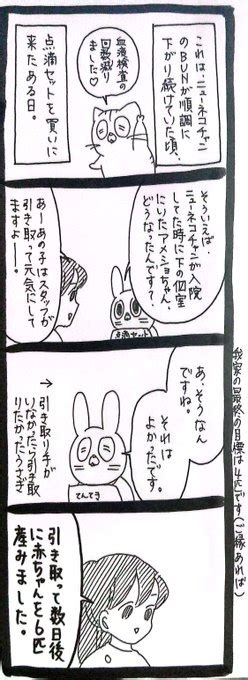 これは、ニューネコチャン
のBUNが順調に
下がり続けていた頃、
血液検査の
回数減り
ました♡
点滴セットを買いに
来たある日。
そういえば、
ニューネコチャンが入院
してた時に下の個室
にいたアメショちゃん、
どうなったんです？
あーあの子はスタッフが
引き取って元気にして
ますよー。
点滴セット
あ、そうなん
ですね。
それは
よかったです。
てんてき
→引き取り手が
いなかったら引き取
りたかったうさぎ
我家の最終の目標は4匹です(ご縁あれば)
引き取って数日後
に赤ちゃんを6匹
産みました。